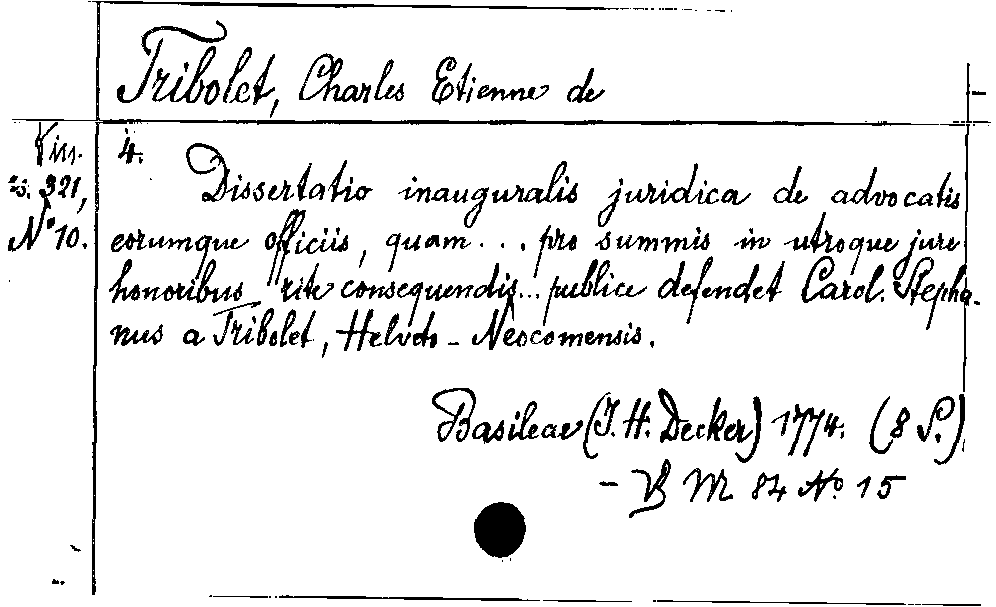 Tribolet, Charles Etienne de
4.
321,
No 10.
Dissertatio inauguralis juridica de advocatis
eorumque officiis, quam... pro summis in utroque jure
honoribus rite consequendis... publice defendet Carol. Stepha-
nus a Tribolet, Helveto-Neocomensis.
Basileae (J. H. Decker) 1774. (8 S.)
- M 84 No 15